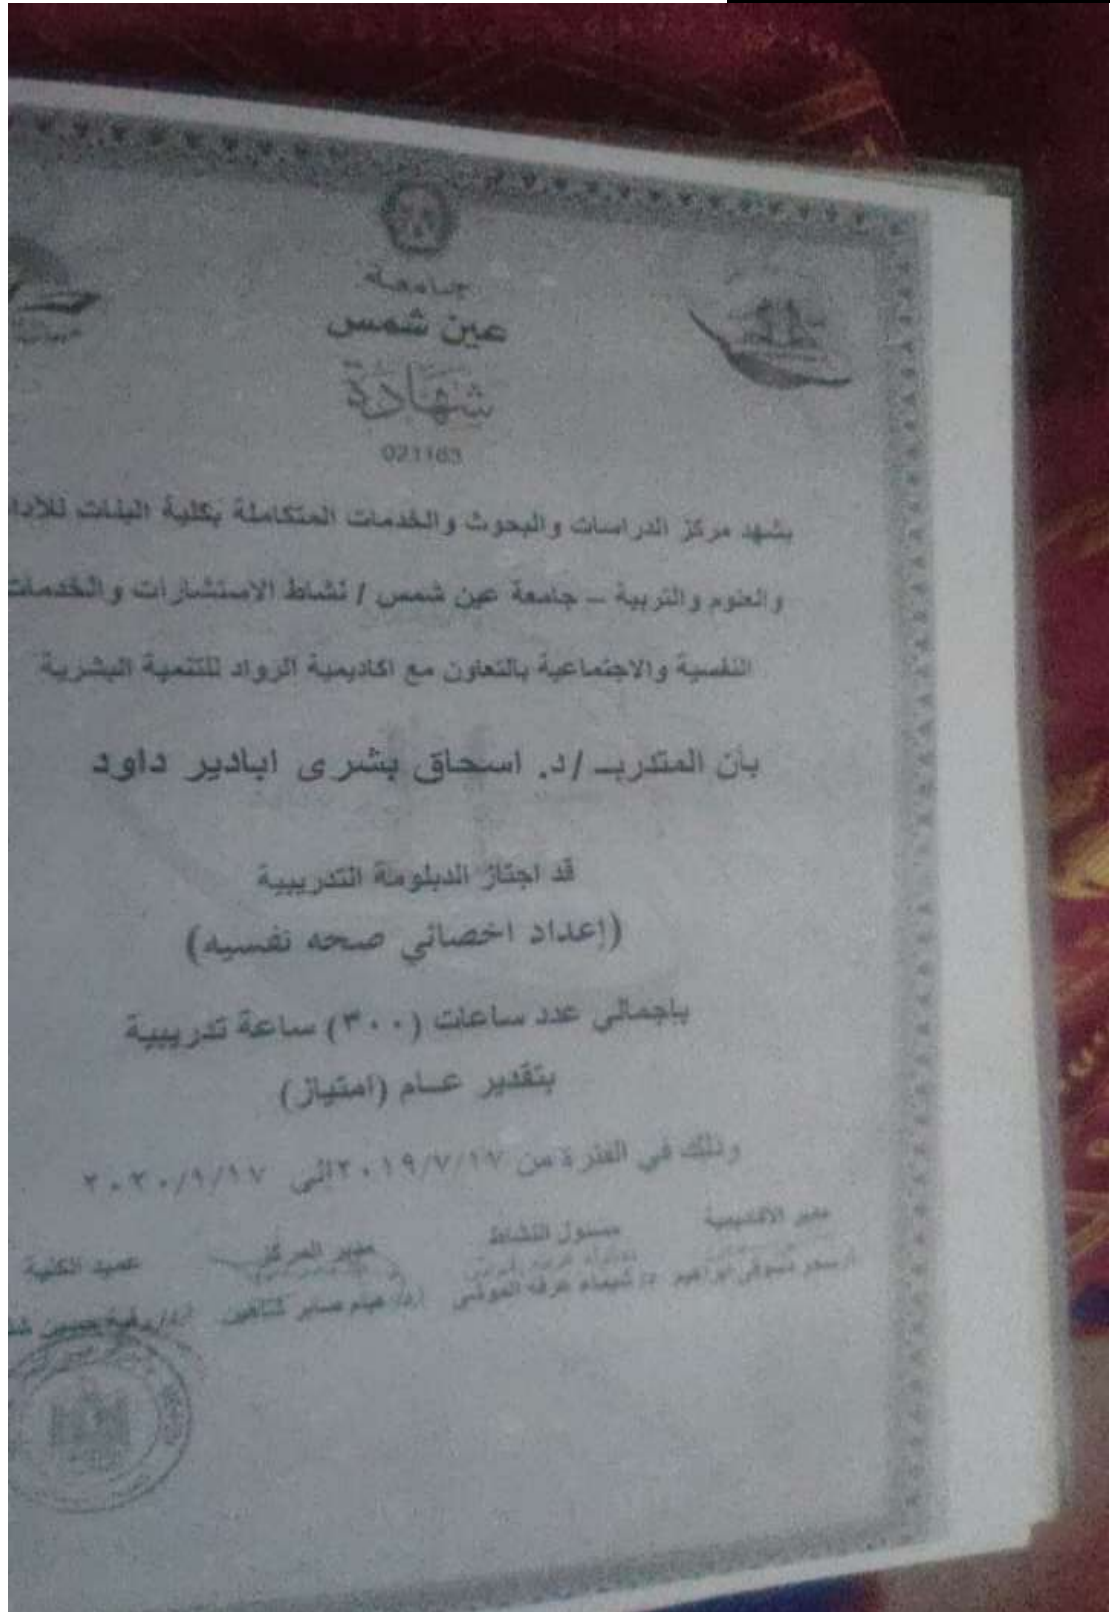 جامعة
عين شمس
شهادة
021163
يشهد مركز الدراسات والبحوث والخدمات المتكاملة بكلية البنات للآدا
والعلوم والتربية – جامعة عين شمس / نشاط الاستشارات والخدمات
النفسية والاجتماعية بالتعاون مع اكاديمية الرواد للتنمية البشرية
بأن المتدربـ /د. اسحاق بشرى ابادير داود
قد اجتاز الدبلومة التدريبية
(إعداد اخصائي صحه نفسيه)
بإجمالي عدد ساعات (٣٠٠) ساعة تدريبية
بتقدير عـــام (امتياز)
وذلك في الفترة من ٢٠١٩/٧/١٧ الى ٢٠٢٠/١/١٧
مدير الأكاديمية مسئول النشاط مدير المركز عميد الكلية
أ/سحر دسوقي ابراهيم د/ شيماء عرفه أ.د/ هيام صابر شاهين أ.د/ رقية حسين